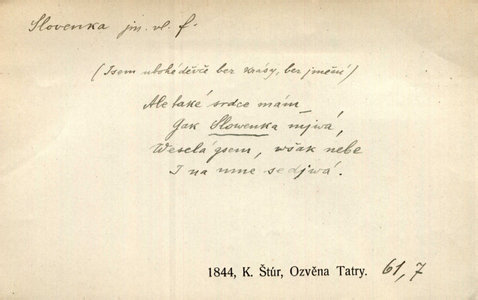 Slovenka jm. vl. f.
(Jsem ubohé děvče bez krásy, bez jmění)
Ale také srdce mám
Gak Slowenka mjwá,
Weselá gsem, však nebe
I na mne se djwá.
1844, K. Štúr, Ozvěna Tatry. 61,7